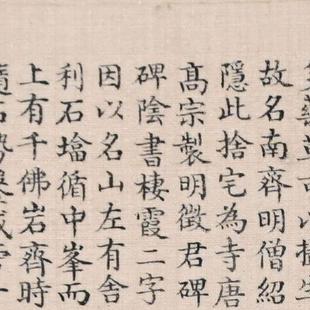 可以攝生
故名南齊明僧紹
隱此捨宅為寺唐
髙宗製明徵君碑
碑陰書棲霞二字
因以名山左有舍
利石墖循中峯而
上有千佛岩齊時
石勢鑿成